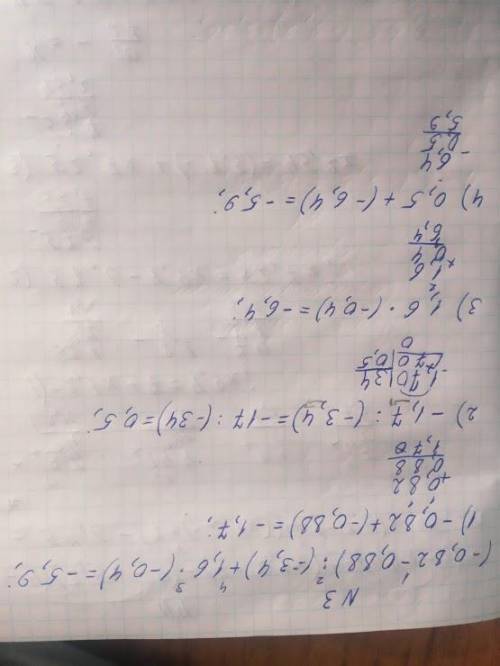 N 3
(-0,82-0,88):(-3,4)+1,6·(-0,4)=-5,9;
1 2 4 3
1) -0,82+(-0,88)=-1,7;
+0,82
0,88
1,70
2) -1,7:(-3,4)=-17:(-34)=0,5;
-170|34
170|0,5
0
3) 1,6·(-0,4)=-6,4;
2
×1,6
0,4
6,4
4) 0,5+(-6,4)=-5,9;
-6,4
0,5
5,9